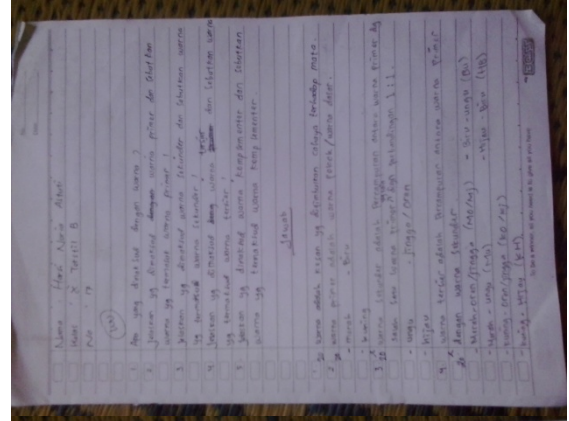 Nama : Hani Nuria
Kelas : X Tekstil B
No : 17
1. Apa yang dimaksud dengan warna ?
2. Jelaskan yg dimaksud dengan warna primer dan sebutkan
warna yg termasuk warna primer !
3. Jelaskan yg dimaksud warna sekunder dan sebutkan warna
yg termasuk warna sekunder !
4. Jelaskan yg dimaksud warna tersier dan sebutkan warna
yg termasuk warna tersier.
5. Jelaskan yg dimaksud warna komplementer dan sebutkan
warna yg termasuk warna komplementer.
Jawab
1. warna adalah kesan yg ditimbulkan cahaya terhadap mata.
2. warna primer adalah warna pokok / warna dasar.
- Merah - Biru
- kuning
3. warna sekunder adalah percampuran antara warna primer dg
salah satu warna primer dgn perbandingan 1:1.
- ungu - jingga / oren
- hijau
4. warna tersier adalah percampuran antara warna primer
dengan warna sekunder
- Merah-oren/jingga (MO/MJ) - Biru-ungu (BU)
- Merah-ungu (MU) - Hijau-Biru (HB)
- kuning-oren/jingga (KO/KJ)
- kuning-hijau (KH)